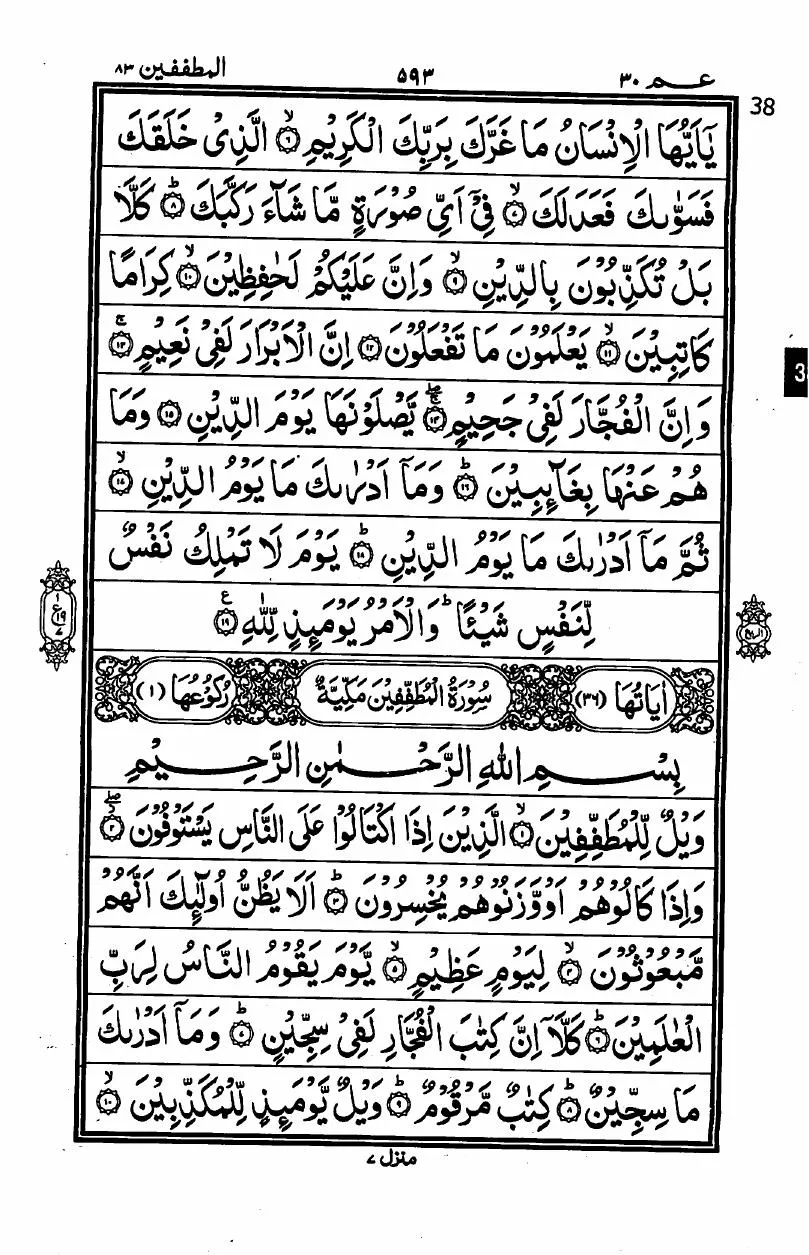 المطففين ٨٣
٥٩٣
عـــم ٣٠
38
يٰۤاَيُّهَا الۡاِنۡسَانُ مَا غَرَّكَ بِرَبِّكَ الۡكَرِيۡمِۙ‏ ٦ الَّذِىۡ خَلَقَكَ
فَسَوّٰٮكَ فَعَدَلَـكَۙ‏ ٧ فِىۡۤ اَىِّ صُوۡرَةٍ مَّا شَآءَ رَكَّبَكَؕ‏ ٨ كَلَّا
بَلۡ تُكَذِّبُوۡنَ بِالدِّيۡنِۙ‏ ٩ وَاِنَّ عَلَيۡكُمۡ لَحٰـفِظِيۡنَۙ‏ ١٠ كِرَامًا
كَاتِبِيۡنَۙ‏ ١١ يَعۡلَمُوۡنَ مَا تَفۡعَلُوۡنَ‏ ١٢ اِنَّ الۡاَبۡرَارَ لَفِىۡ نَعِيۡمٍۚ‏ ١٣
وَاِنَّ الۡفُجَّارَ لَفِىۡ جَحِيۡمٍۚ ۖ‏ ١٤ يَّصۡلَوۡنَهَا يَوۡمَ الدِّيۡنِ‏ ١٥ وَمَا
هُمۡ عَنۡهَا بِغَآٮِٕبِيۡنَؕ‏ ١٦ وَمَاۤ اَدۡرٰٮكَ مَا يَوۡمُ الدِّيۡنِۙ‏ ١٧
ثُمَّ مَاۤ اَدۡرٰٮكَ مَا يَوۡمُ الدِّيۡنِؕ‏ ١٨ يَوۡمَ لَا تَمۡلِكُ نَفۡسٌ
لِّنَفۡسٍ شَيۡـًٔـاؕ وَالۡاَمۡرُ يَوۡمَٮِٕذٍ لِّلّٰهِ‏ ١٩
اٰيَاتُهَا (٣٦) سُوۡرَةُ الۡمُطَفِّفِيۡنَ مَكِّيَّةٌ رُكُوۡعُهَا (١)
بِسۡمِ اللهِ الرَّحۡمٰنِ الرَّحِيۡمِ
وَيۡلٌ لِّلۡمُطَفِّفِيۡنَۙ‏ ١ الَّذِيۡنَ اِذَا اكۡتَالُوۡا عَلَى النَّاسِ يَسۡتَوۡفُوۡنَ ۖ‏ ٢
وَاِذَا كَالُوۡهُمۡ اَوْ وَّزَنُوۡهُمۡ يُخۡسِرُوۡنَؕ‏ ٣ اَلَا يَظُنُّ اُولٰٓٮِٕكَ اَنَّهُمۡ
مَّبۡعُوۡثُوۡنَۙ‏ ٤ لِيَوۡمٍ عَظِيۡمٍۙ‏ ٥ يَّوۡمَ يَقُوۡمُ النَّاسُ لِرَبِّ
الۡعٰلَمِيۡنَؕ‏ ٦ كَلَّاۤ اِنَّ كِتٰبَ الۡفُجَّارِ لَفِىۡ سِجِّيۡنٍؕ‏ ٧ وَمَاۤ اَدۡرٰٮكَ
مَا سِجِّيۡنٌؕ‏ ٨ كِتٰبٌ مَّرۡقُوۡمٌؕ‏ ٩ وَيۡلٌ يَّوۡمَٮِٕذٍ لِّلۡمُكَذِّبِيۡنَۙ‏ ١٠
منزل ٧
3